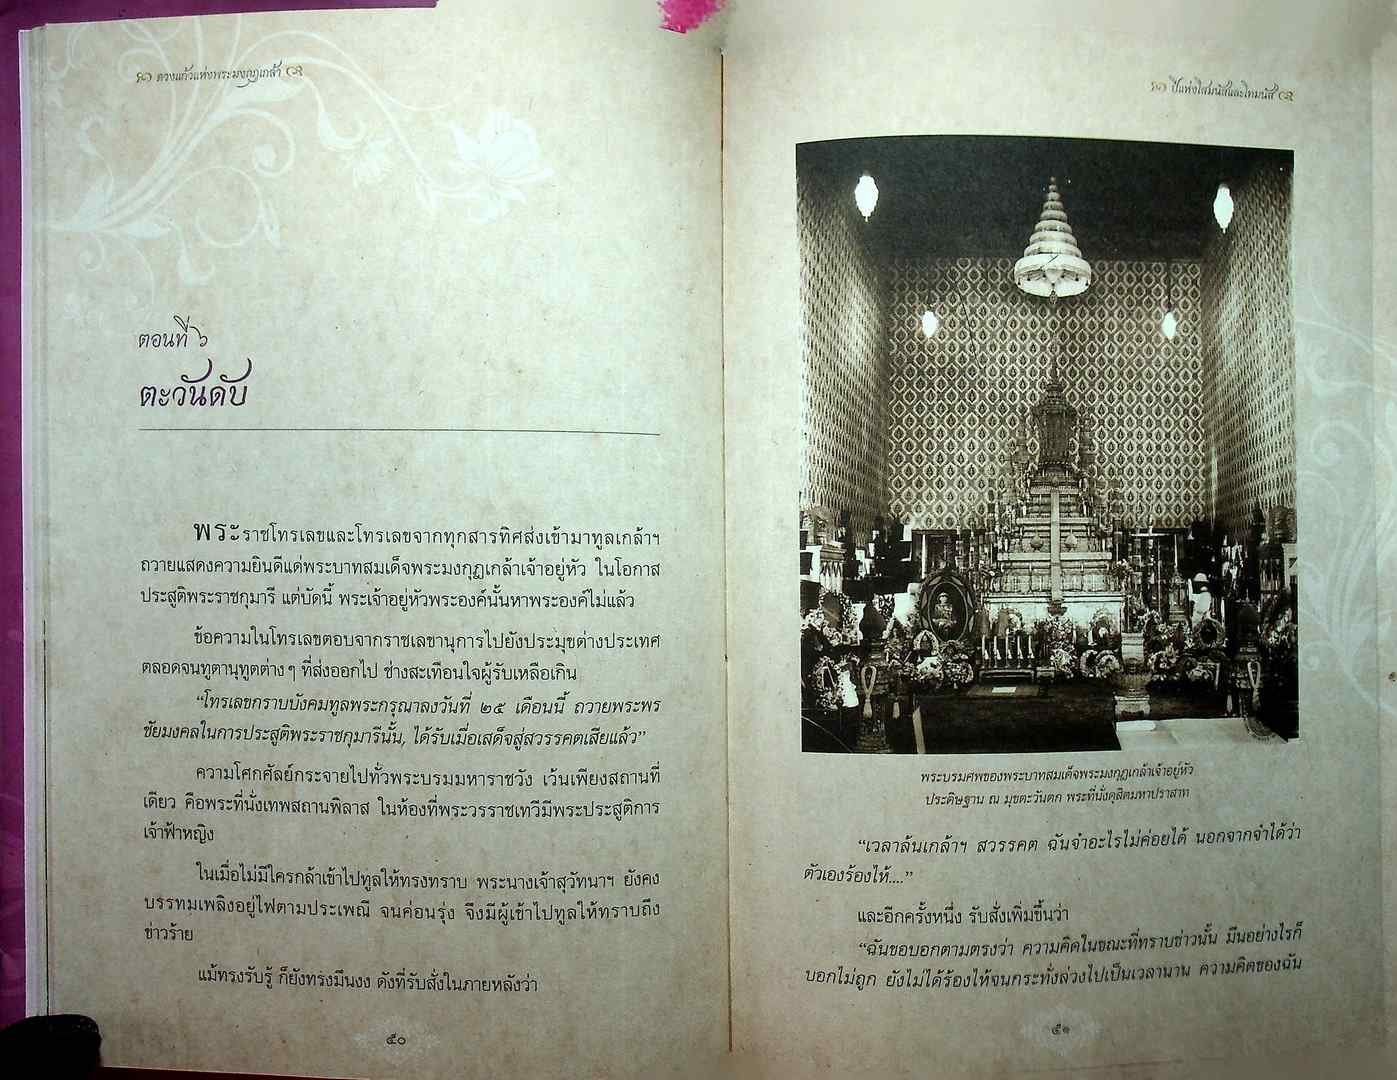 ดวงแก้วแห่งพระมงกุฎเกล้า
ตอนที่ ๖
ตะวันดับ
พระราชโทรเลขและโทรเลขจากทุกสารทิศส่งเข้ามาทูลเกล้าฯ
ถวายแสดงความยินดีแด่พระบาทสมเด็จพระมงกุฎเกล้าเจ้าอยู่หัว ในโอกาส
ประสูติพระราชกุมารี แต่บัดนี้ พระเจ้าอยู่หัวพระองค์นั้นหาพระองค์ไม่แล้ว
ข้อความในโทรเลขตอบจากราชเลขานุการไปยังประมุขต่างประเทศ
ตลอดจนทูตานุทูตต่างๆ ที่ส่งออกไป ช่างสะเทือนใจผู้รับเหลือเกิน
“โทรเลขกราบบังคมทูลพระกรุณาลงวันที่ ๒๕ เดือนนี้ ถวายพระพร
ชัยมงคลในการประสูติพระราชกุมารีนั้น, ได้รับเมื่อเสด็จสู่สวรรคตเสียแล้ว”
ความโศกศัลย์กระจายไปทั่วพระบรมมหาราชวัง เว้นเพียงสถานที่
เดียว คือพระที่นั่งเทพสถานพิลาส ในห้องที่พระวรราชเทวีมีพระประสูติการ
เจ้าฟ้าหญิง
ในเมื่อไม่มีใครกล้าเข้าไปทูลให้ทรงทราบ พระนางเจ้าสุวัทนาฯ ยังคง
บรรทมเพลิงอยู่ไฟตามประเพณี จนค่อนรุ่ง จึงมีผู้เข้าไปทูลให้ทราบถึง
ข่าวร้าย
แม้ทรงรับรู้ ก็ยังทรงมึนงง ดังที่รับสั่งในภายหลังว่า
๕๐
ปีแห่งโสมนัสและโทมนัส
พระบรมศพของพระบาทสมเด็จพระมงกุฎเกล้าเจ้าอยู่หัว
ประดิษฐาน ณ มุขตะวันตก พระที่นั่งดุสิตมหาปราสาท
“เวลาล้นเกล้าฯ สวรรคต ฉันจำอะไรไม่ค่อยได้ นอกจากจำได้ว่า
ตัวเองร้องไห้....”
และอีกครั้งหนึ่ง รับสั่งเพิ่มขึ้นว่า
“ฉันขอบอกตามตรงว่า ความคิดในขณะที่ทราบข่าวนั้น มึนอย่างไรก็
บอกไม่ถูก ยังไม่ได้ร้องไห้จนกระทั่งล่วงไปเป็นเวลานาน ความคิดของฉัน
๕๑